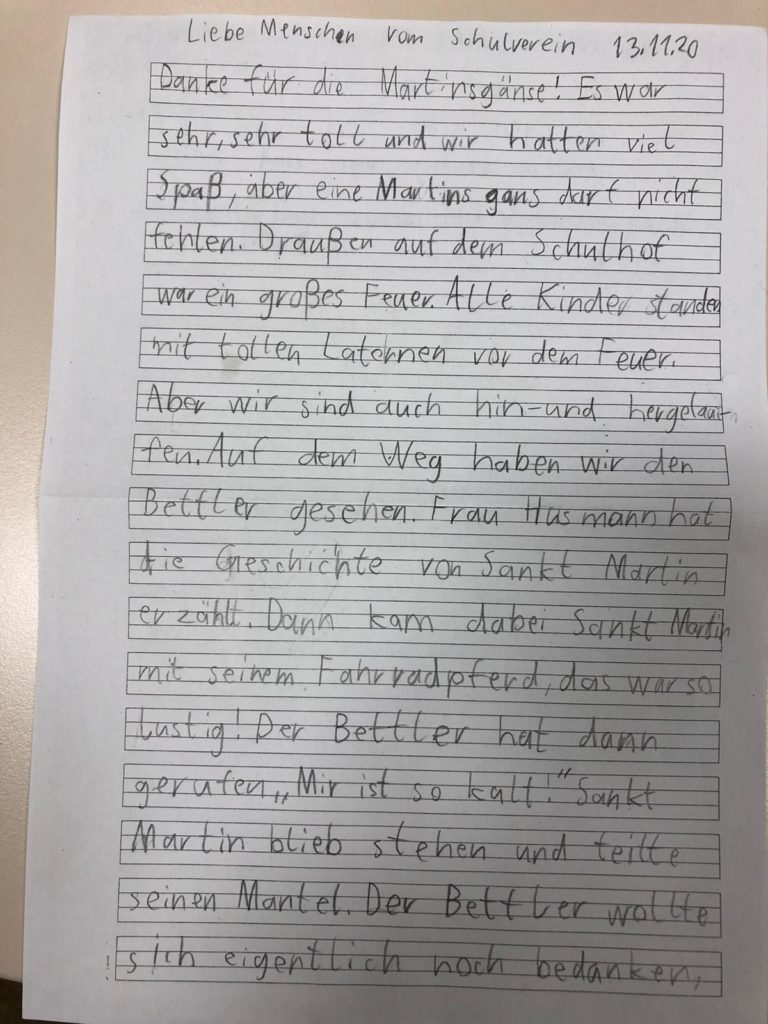 Liebe Menschen vom Schulverein 13.11.20
Danke für die Martinsgänse! Es war
sehr, sehr toll und wir hatten viel
Spaß, aber eine Martins gans darf nicht
fehlen. Draußen auf dem Schulhof
war ein großes Feuer. Alle Kinder standen
mit tollen Laternen vor dem Feuer.
Aber wir sind auch hin-und hergelauf
fen. Auf dem Weg haben wir den
Bettler gesehen. Frau Husmann hat
die Geschichte von Sankt Martin
erzählt. Dann kam dabei Sankt Martin
mit seinem Fahrradpferd, das war so
lustig! Der Bettler hat dann
gerufen „Mir ist so kalt!" Sankt
Martin blieb stehen und teilte
seinen Mantel. Der Bettler wollte
sich eigentlich noch bedanken,